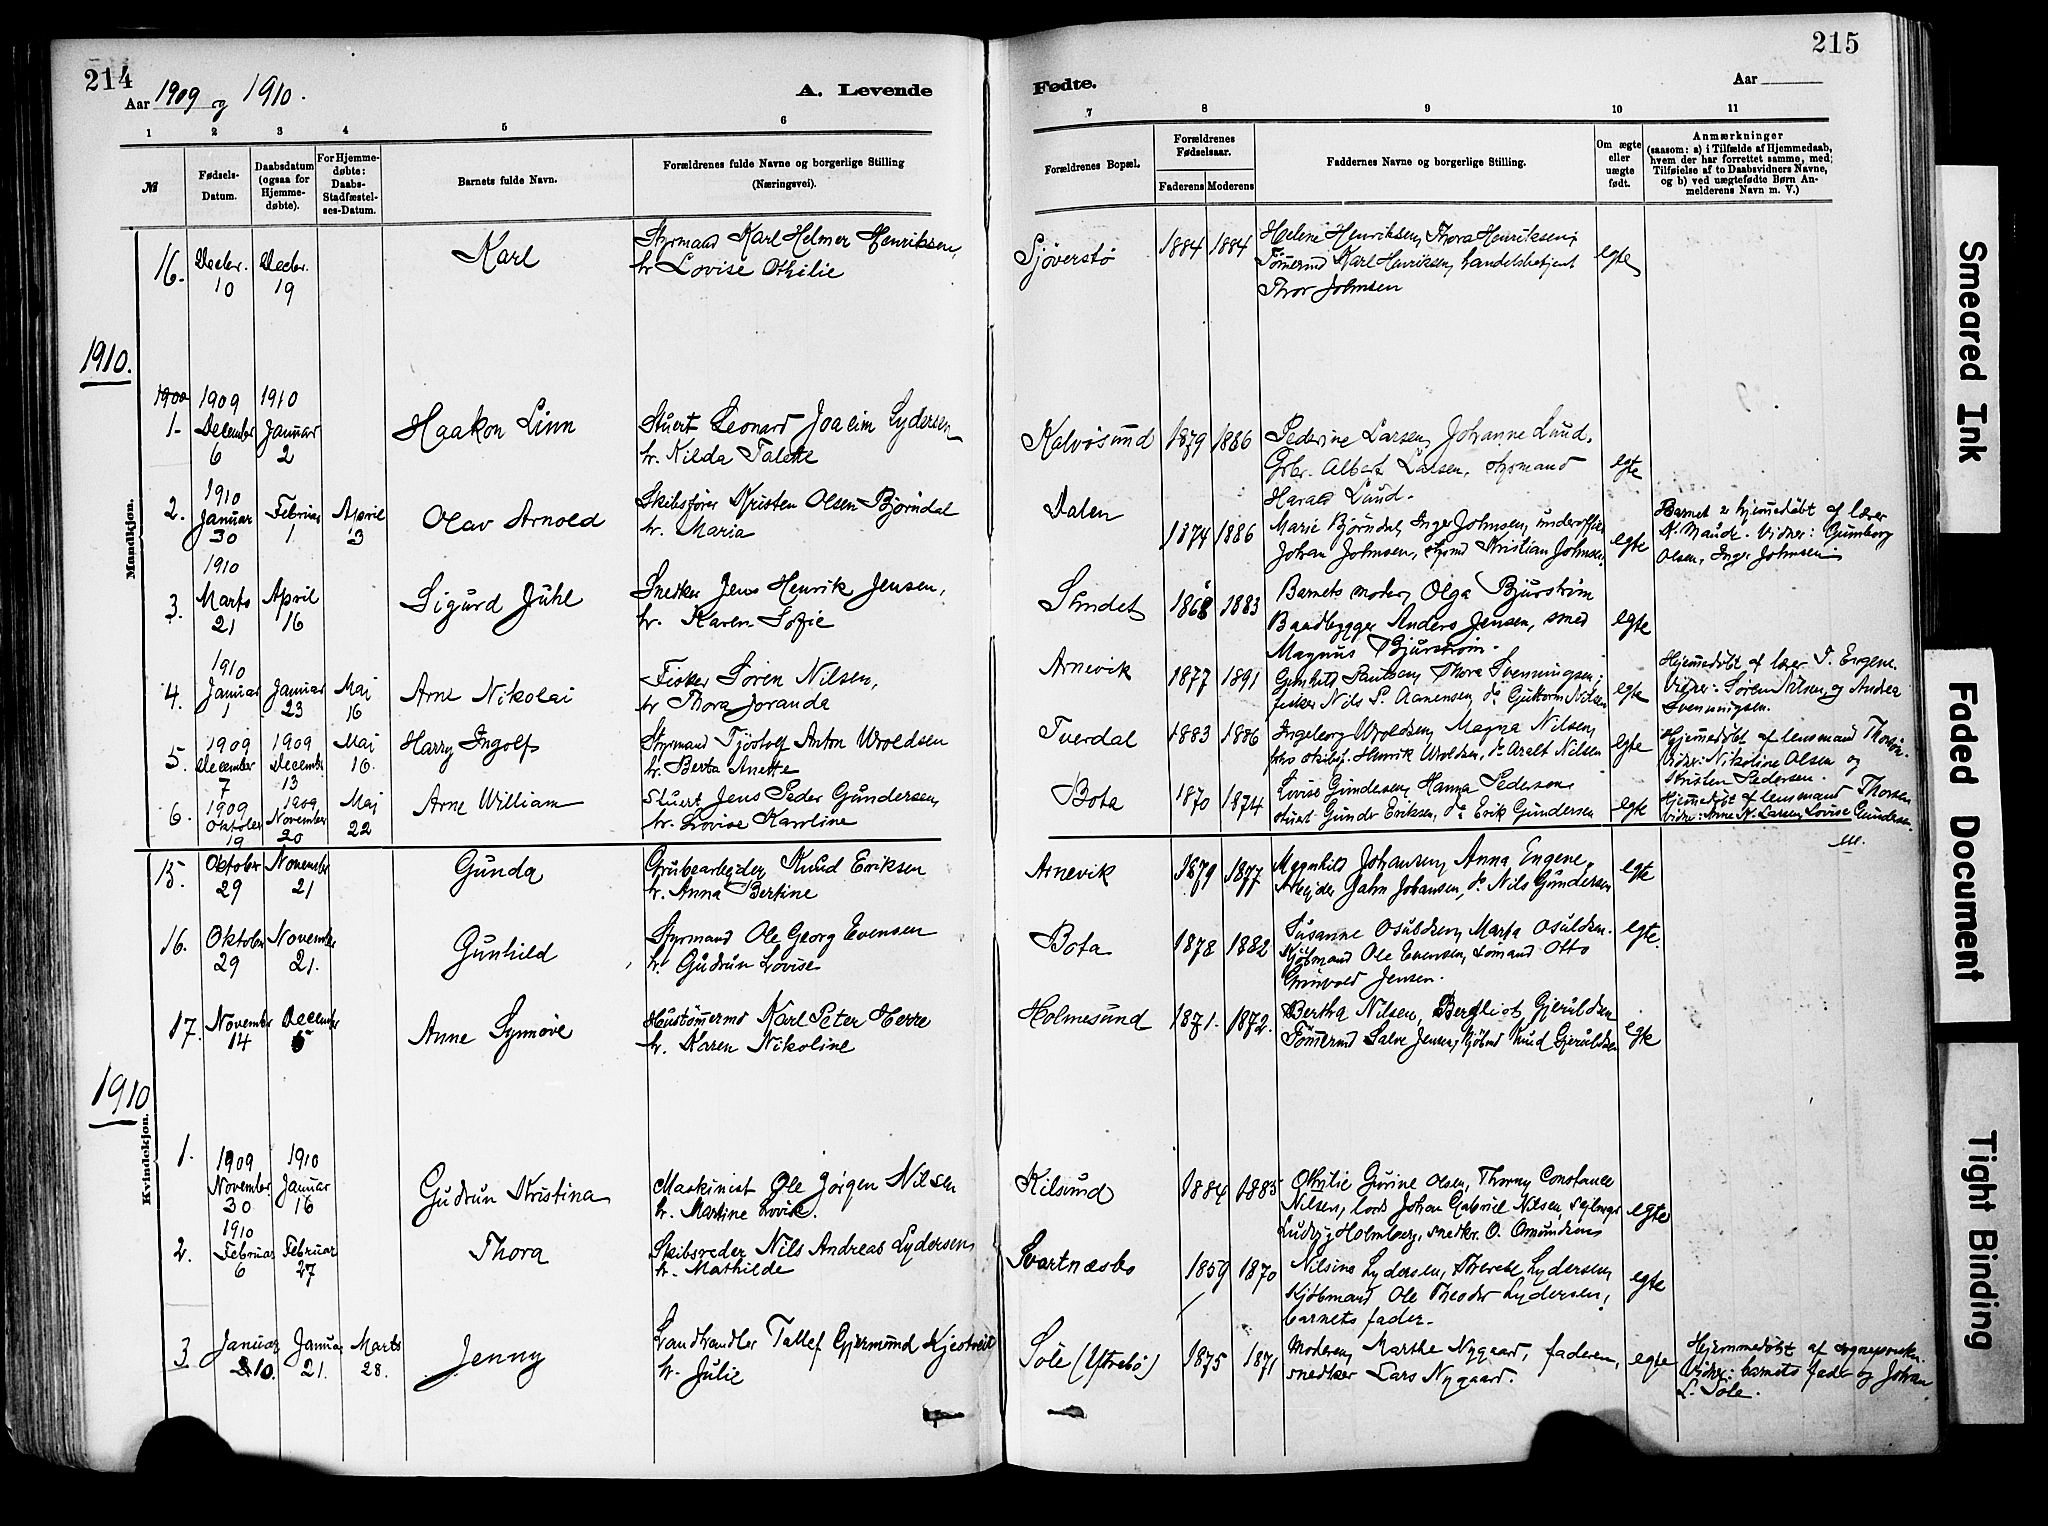 214
Aar 1909 og 1910.
A. Levende
1 2 3 4 5 6
№
Fødsels-
Datum.
Daabsdatum
(ogsaa for
Hjemme-
døbte).
For Hjemme-
døbte:
Daabs-
Stadfæstel-
ses-Datum.
Barnets fulde Navn.
Forældrenes fulde Navne og borgerlige Stilling
(Næringsvei).
Mandkjøn.
16. Decbr. 10 Decbr. 19 Karl
Styrmand Karl Helmer Henriksen,
h. Lovise Othilie
1910.
1. 1909 December 6 1910 Januar 2 Haakon Linn
Stuert Leonard Joacim Lydersen
h. Kilda Talette
2. 1910 Januar 30 Februar 1 April 3 Olav Arnold
Skibsfører Kristen Olsen Bjørndal
h. Maria
3. 1910 Marts 21 April 16 Sigurd Juhl
Snedker Jens Henrik Jensen,
h. Karen Sofie
4. 1910 Januar 1 Januar 23 Maj 16 Arne Nikolai
Fisker Søren Nilsen,
h. Thora Joranda
5. 1909 December 7 1909 December 13 Maj 16. Harry Ingolf
Styrmand Tjøstolf Anton Wroldsen
h. Berta Anette
6. 1909 Oktober 19 1909 November 20 Maj 22 Arne William
Stuert Jens Peder Gundersen,
h. Lovise Karoline
Kvindekjøn.
15. Oktober 29 November 21 Gunda
Grubearbejder Knud Eriksen
h. Anna Bertine
16. Oktober 29 November 21. Gunhild
Styrmand Ole Georg Evensen
h. Gudrun Lovise
17. November 14 December 5 Anne Synnøve
Hustømermd Karl Peter Herre
h. Karen Nikoline
1910
1. 1909 November 30 1910 Januar 16 Gudrun Kristina
Maskinist Ole Jørgen Nilsen
h. Martine Lovise.
2. 1910 Februar 6 Februar 27 Thora
Skibsreder Nils Andreas Lydersen,
h. Mathilde
3 Januar 10. Januar 21. Marts 28. Jenny
Landhandler Tallef Gjermund Kjestveit
h. Julie
215
Fødte.
Aar
7 8 9 10 11
Forældrenes Bopæl.
Forældrenes
Fødselsaar.
Faderens Moderens
Faddernes Navne og borgerlige Stilling.
Om ægte
eller
uægte
født.
Anmærkninger
(saasom: a) i Tilfælde af Hjemmedaab,
hvem der har forrettet samme, med
Tilføielse af to Daabsvidners Navne,
og b) ved uægtefødte Børn An-
melderens Navn m. V.)
Sjøverstø 1884 1884
Helene Henriksen, Thora Henriksen,
Tømermd Karl Henriksen, handelsbetjent
Thor Johnsen
egte
Kalvøsund 1879 1886
Pederine Larsen, Johanne Lund.
Grbr. Albert Larsen, styrmand
Harald Lund.
egte
Dalen 1874 1886
Marie Bjørndal, Inger Johnsen, underoffic
Johan Johnsen, stymd Kristian Johnsen
egte
Barnet er hjemmedøbt af lærer
K. Maude. Vidner: Gunborg
Olsen, Inger Johnsen
1868 1883
Barnets moder, Olga Bjurstrøm
Baadbygger Anders Jensen, smed
Magnus Bjurstrøm.
egte
Arnevik 1877 1891
Thora Svenningsen,
fisker Nils P. Aanensen, do Guttorm Nilsen
egte
Hjemmedøbt af lærer T. Engene.
Vidner: Søren Nilsen og Andrea
Svenningsen.
Tverdal 1883 1886
Ingeborg Wroldsen, Magna Nilsen,
Henrik Wroldsen, do Aralt Nilsen
egte
Hjemmedøbt af lensmand Thorsen.
Vidner: Nikoline Olsen og
Kristen Pedersen.
Bota 1870 1874
Lovise Gundersen, Hanna Pedersen
stuert Gunder Eriksen, do Erik Gundersen
egte
Hjemmedøbt af lensmand Thorsen
Vidner: Arne N. Larsen, Lovise Gundersen
Arnevik 1879 1877
Magnhild Johansen, Anna Engene.
Arbejder Jahn Johansen, do Nils Gundersen
egte
Bota 1878 1882
Susanne Osuldsen, Marta Osuldsen.
Kjøbmand Ole Evensen, sømand Otto
Grinvold Jensen.
egte.
Holmesund 1871. 1872.
Bertha Nilsen, Bergliot Gjeruldsen
Tømermd Salve Jensen, kjøbmd Knud Gjeruldsen
egte
Kilsund 1884 1885
Othylie Gurine Olsen, Thorny Constance
Nilsen, lods Johan Gabriel Nilsen,
Ludvig Holmberg, snedkr. O. Omundsen
egte
Svartnæsbo 1859 1870
Nilsine Lydersen, Therese Lydersen,
Kjøbmand Ole Theodor Lydersen,
barnets fader.
egte
Sole (Ystebø) 1875 1871
Moderen, Marthe Nygaard, faderen,
snedker Lars Nygaard.
egte
Hjemmedøbt af sognepresten.
Vidner: barnets fader og Johan
L. Sole.
Smeared Ink
Faded Document
Tight Binding